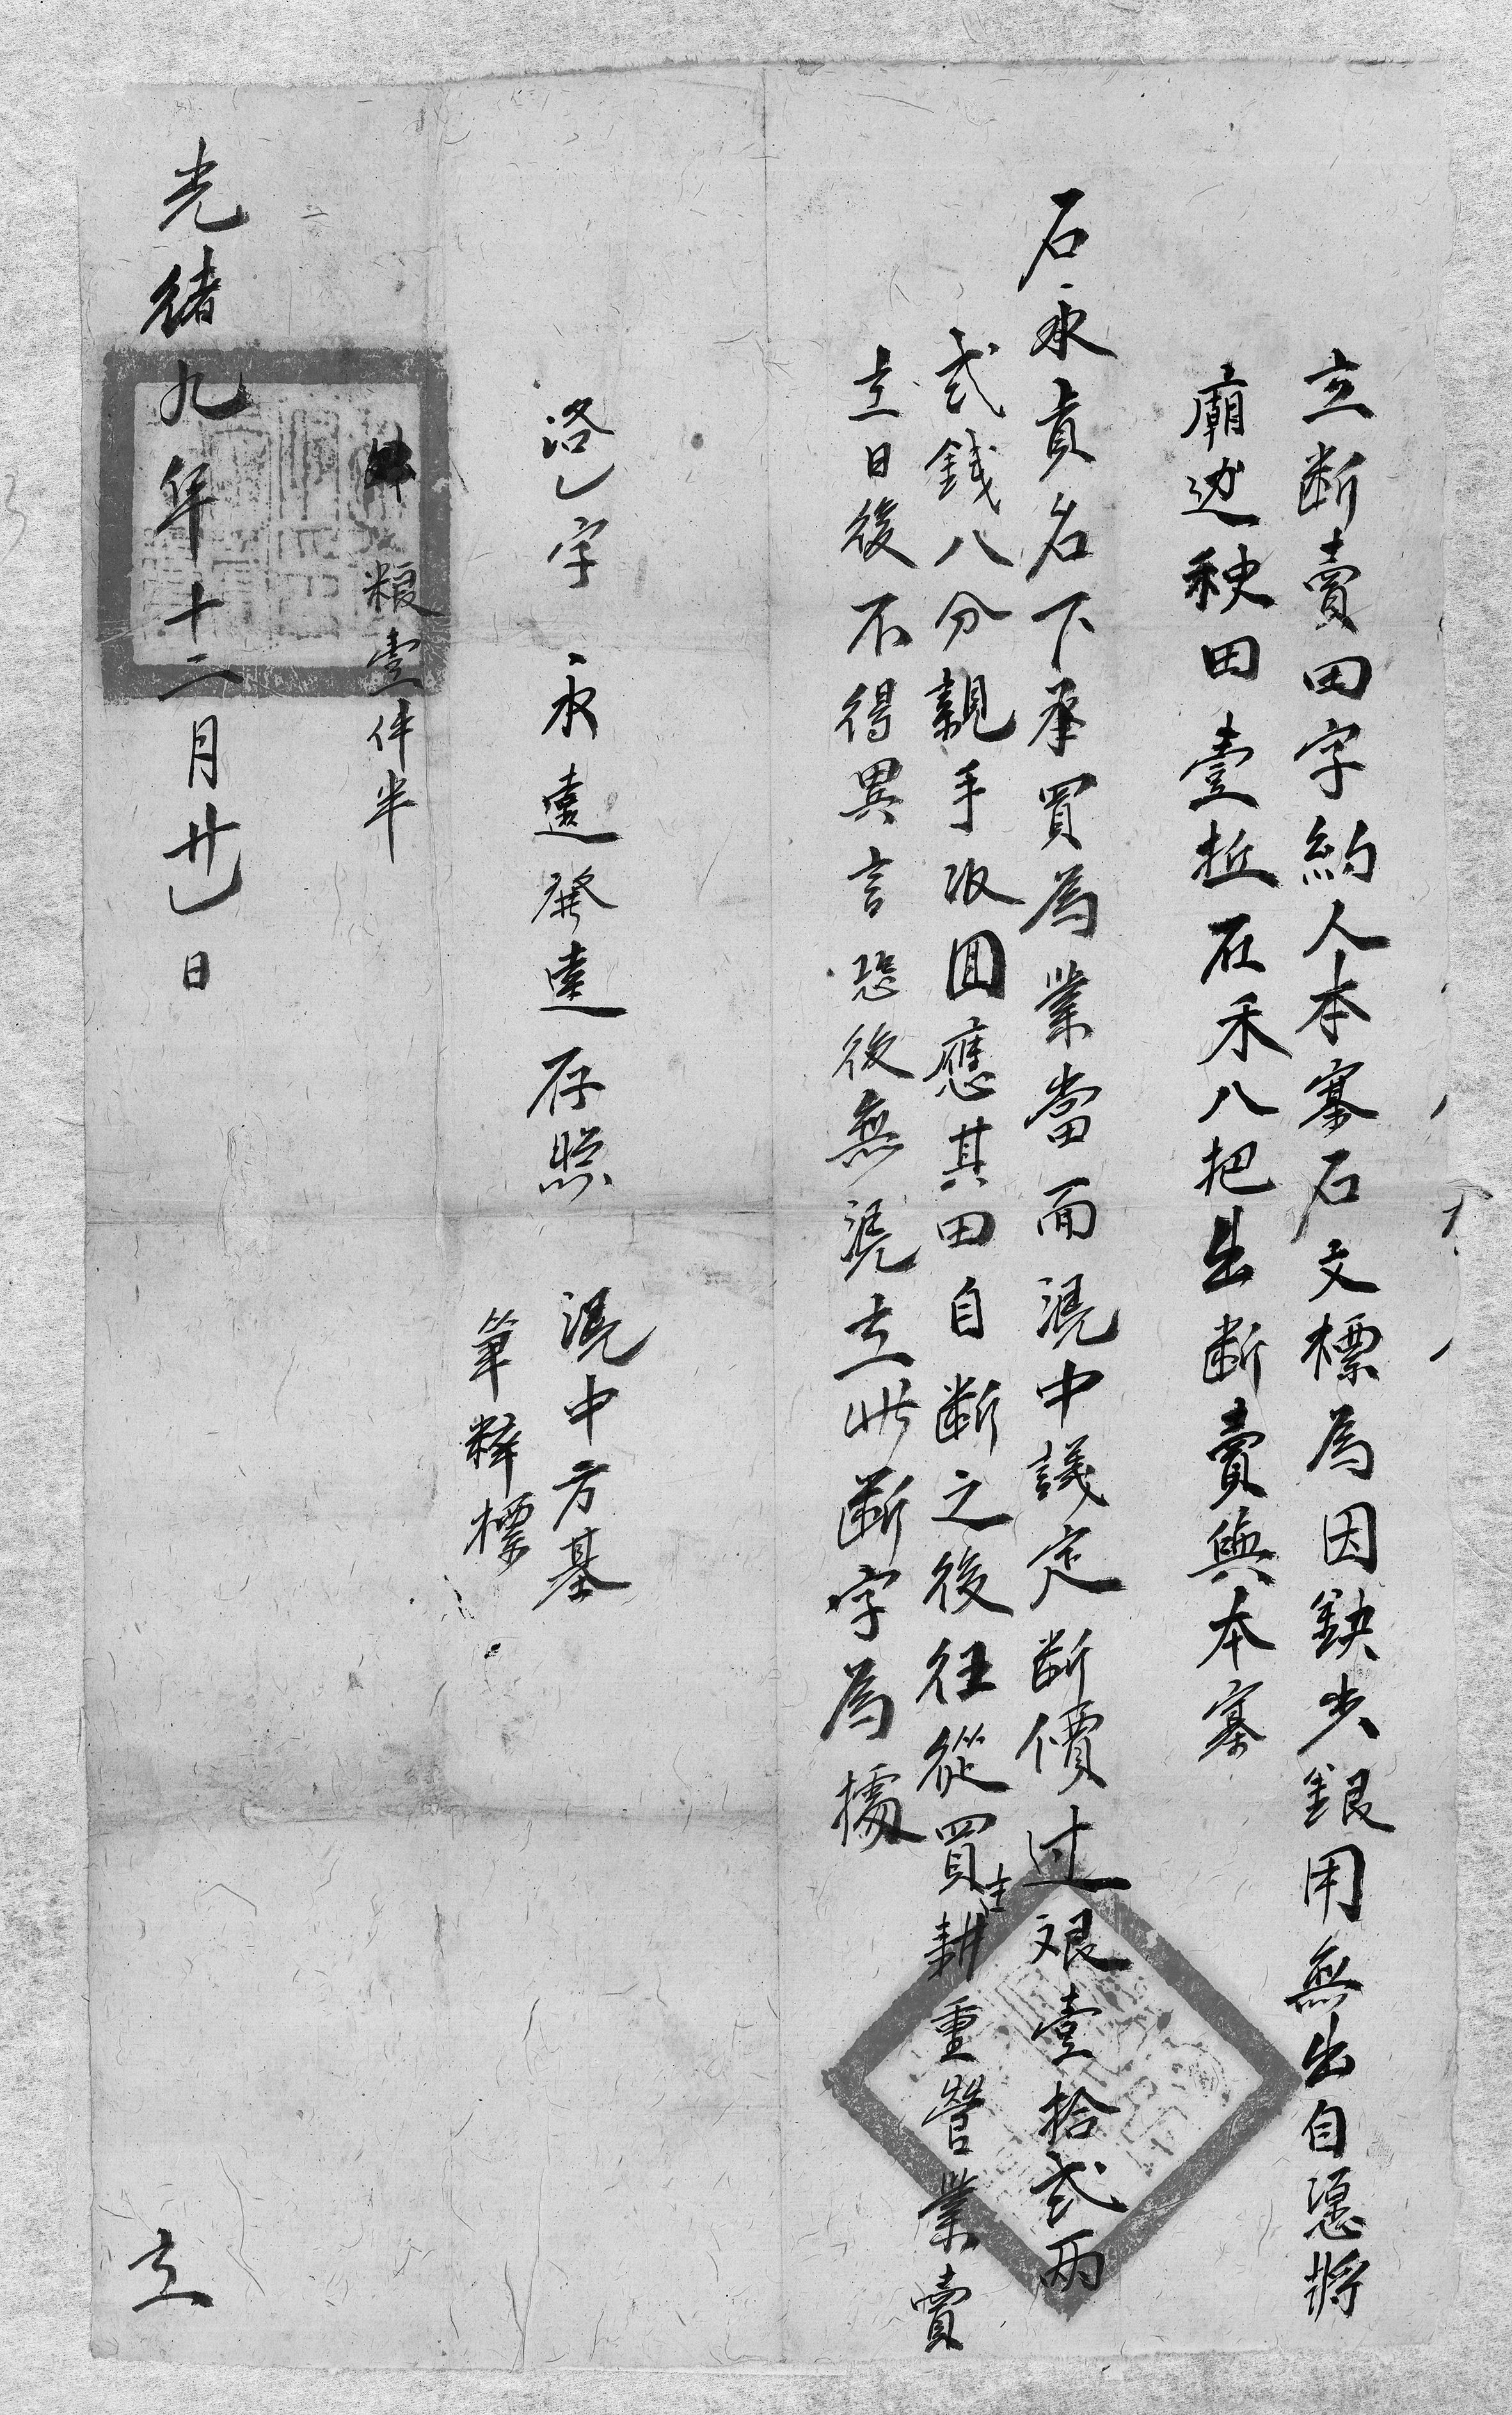 立断賣田字約人本寨石文標為因缺少銀用無出自愿將
廟边秧田壹坵在禾八把出断賣與本寨
石永貴名下承買為業當面凴中議定断價过艮壹拾弍兩
弍錢八分親手收回應其田自断之後任從買主耕重營業賣
主日後不得異言恐後無凴立此断字為據
凴中方基
筆粹標
洛乙字 永遠發達存照
粮壹件半
光緒九年十二月廿乙日 立